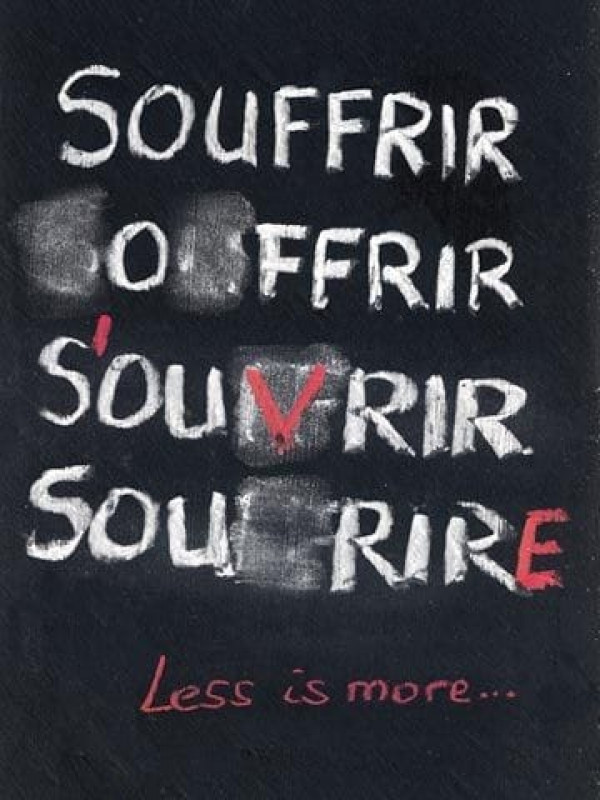 SOUFFRIR
OFFRIR
S'OUVRIR
SOURIRE
Less is more...